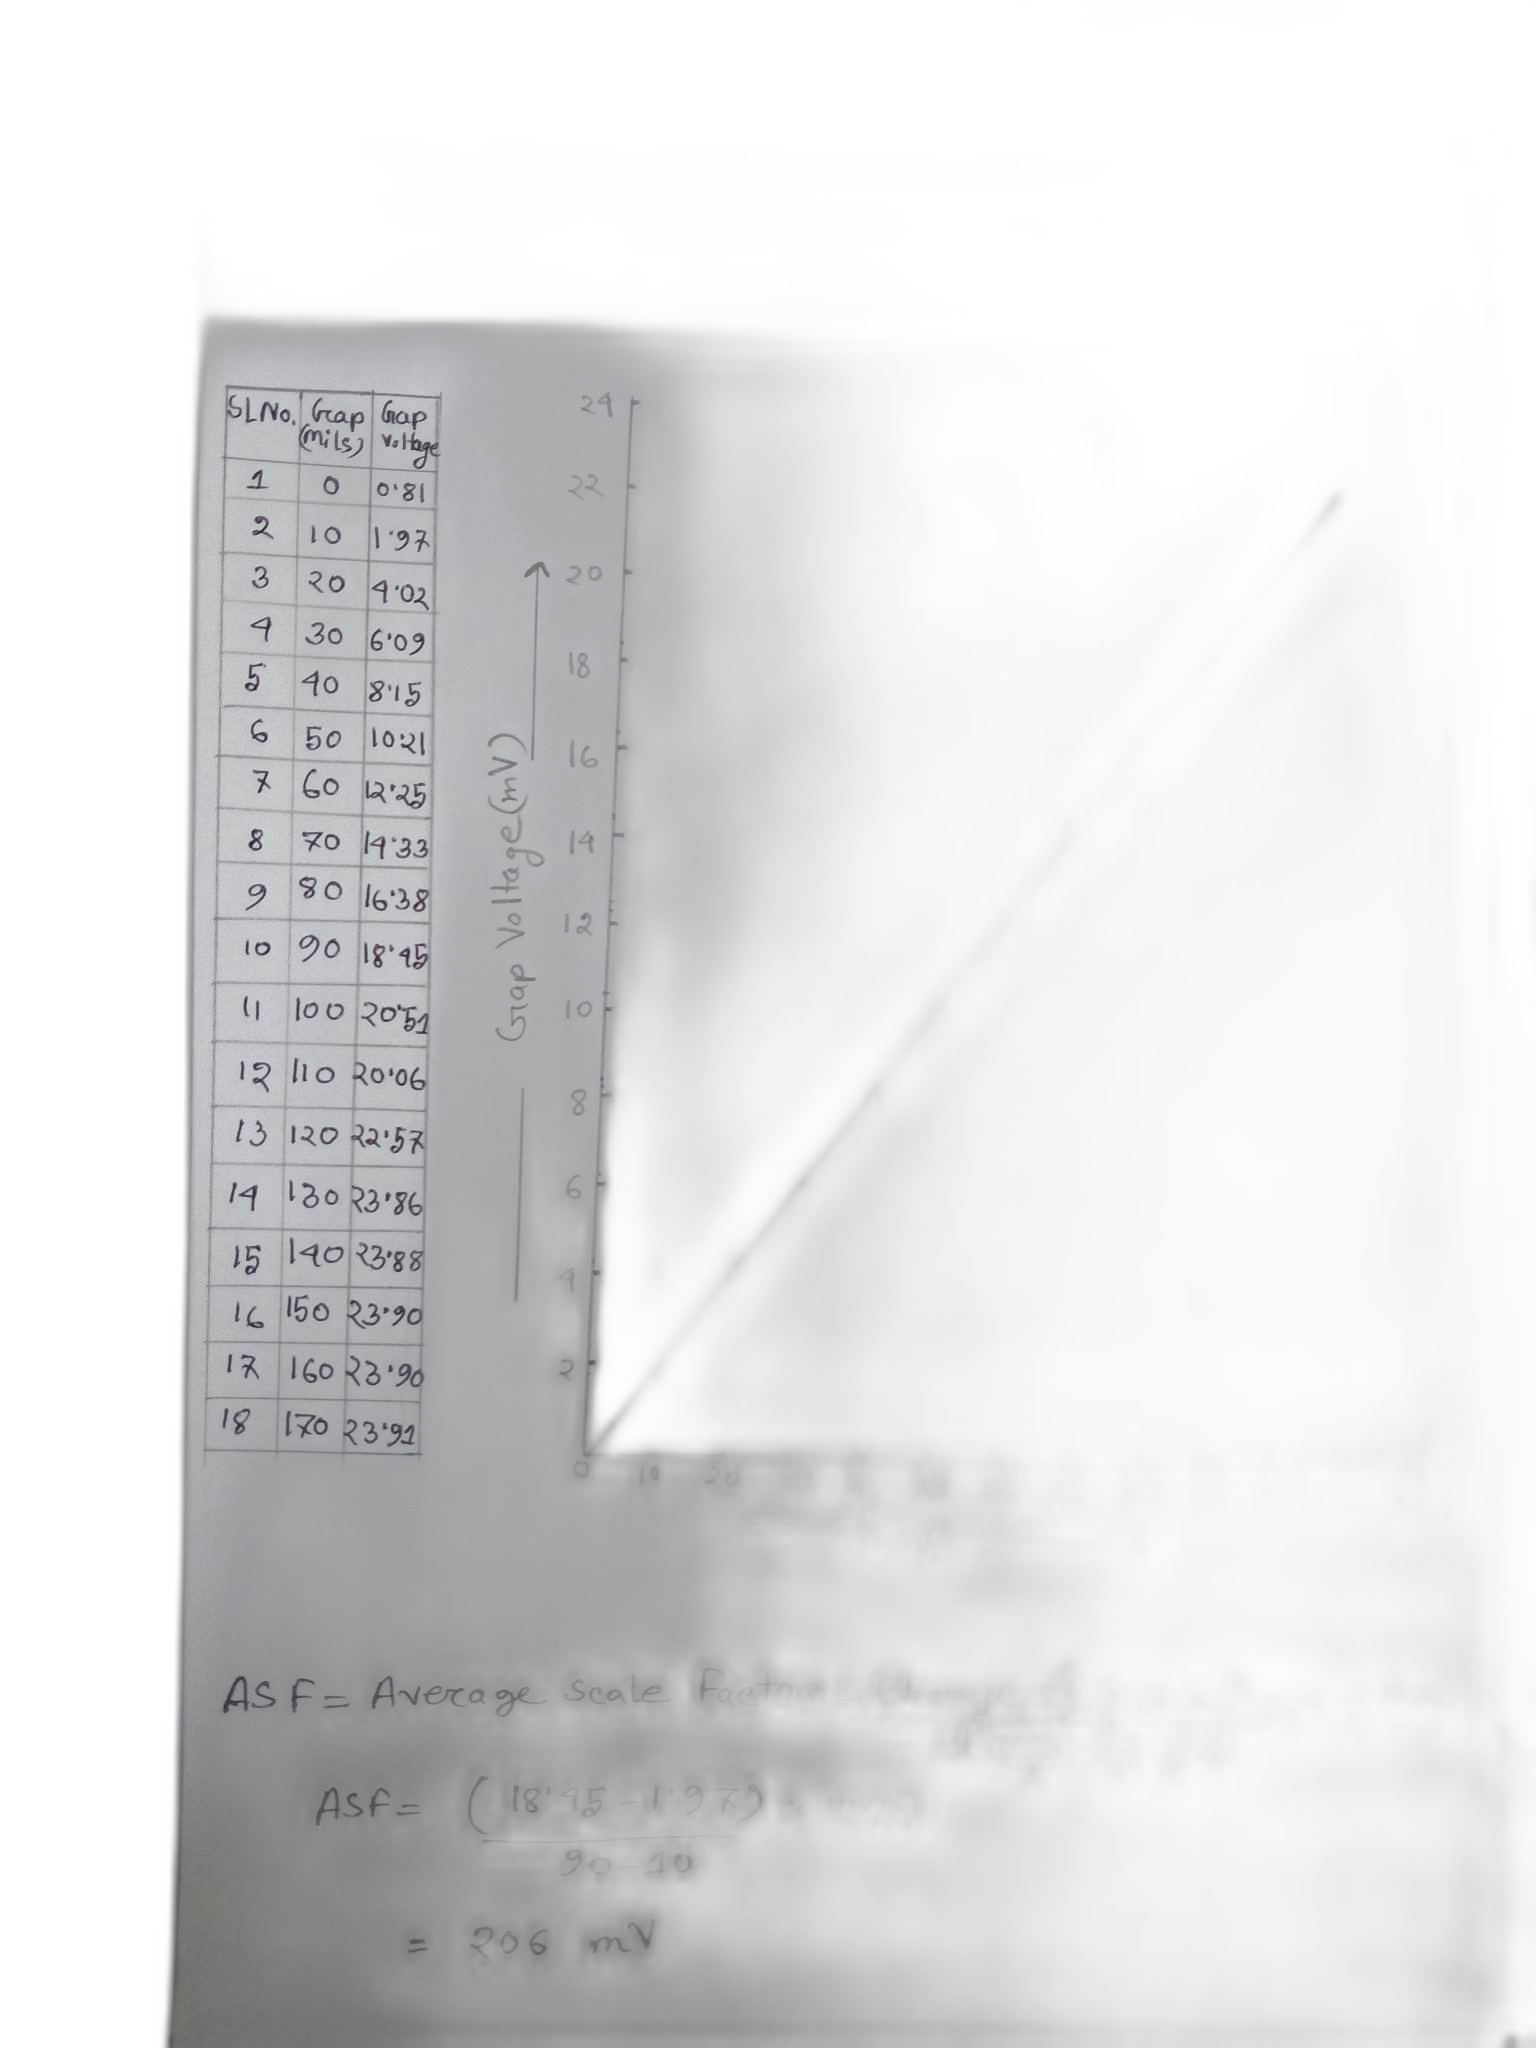 SL No. Gap (mils) Gap voltage
1 0 0.81
2 10 1.97
3 20 4.02
4 30 6.09
5 40 8.15
6 50 10.21
7 60 12.25
8 70 14.33
9 80 16.38
10 90 18.45
11 100 20.51
12 110 20.06
13 120 22.57
14 130 23.86
15 140 23.88
16 150 23.90
17 160 23.90
18 170 23.91
24
22
20
18
16
14
12
10
8
6
4
2
Gap Voltage (mV)
0 10 20
ASF = Average Scale Factor
ASF = (18.45 - 1.97)
90-10
= 206 mV